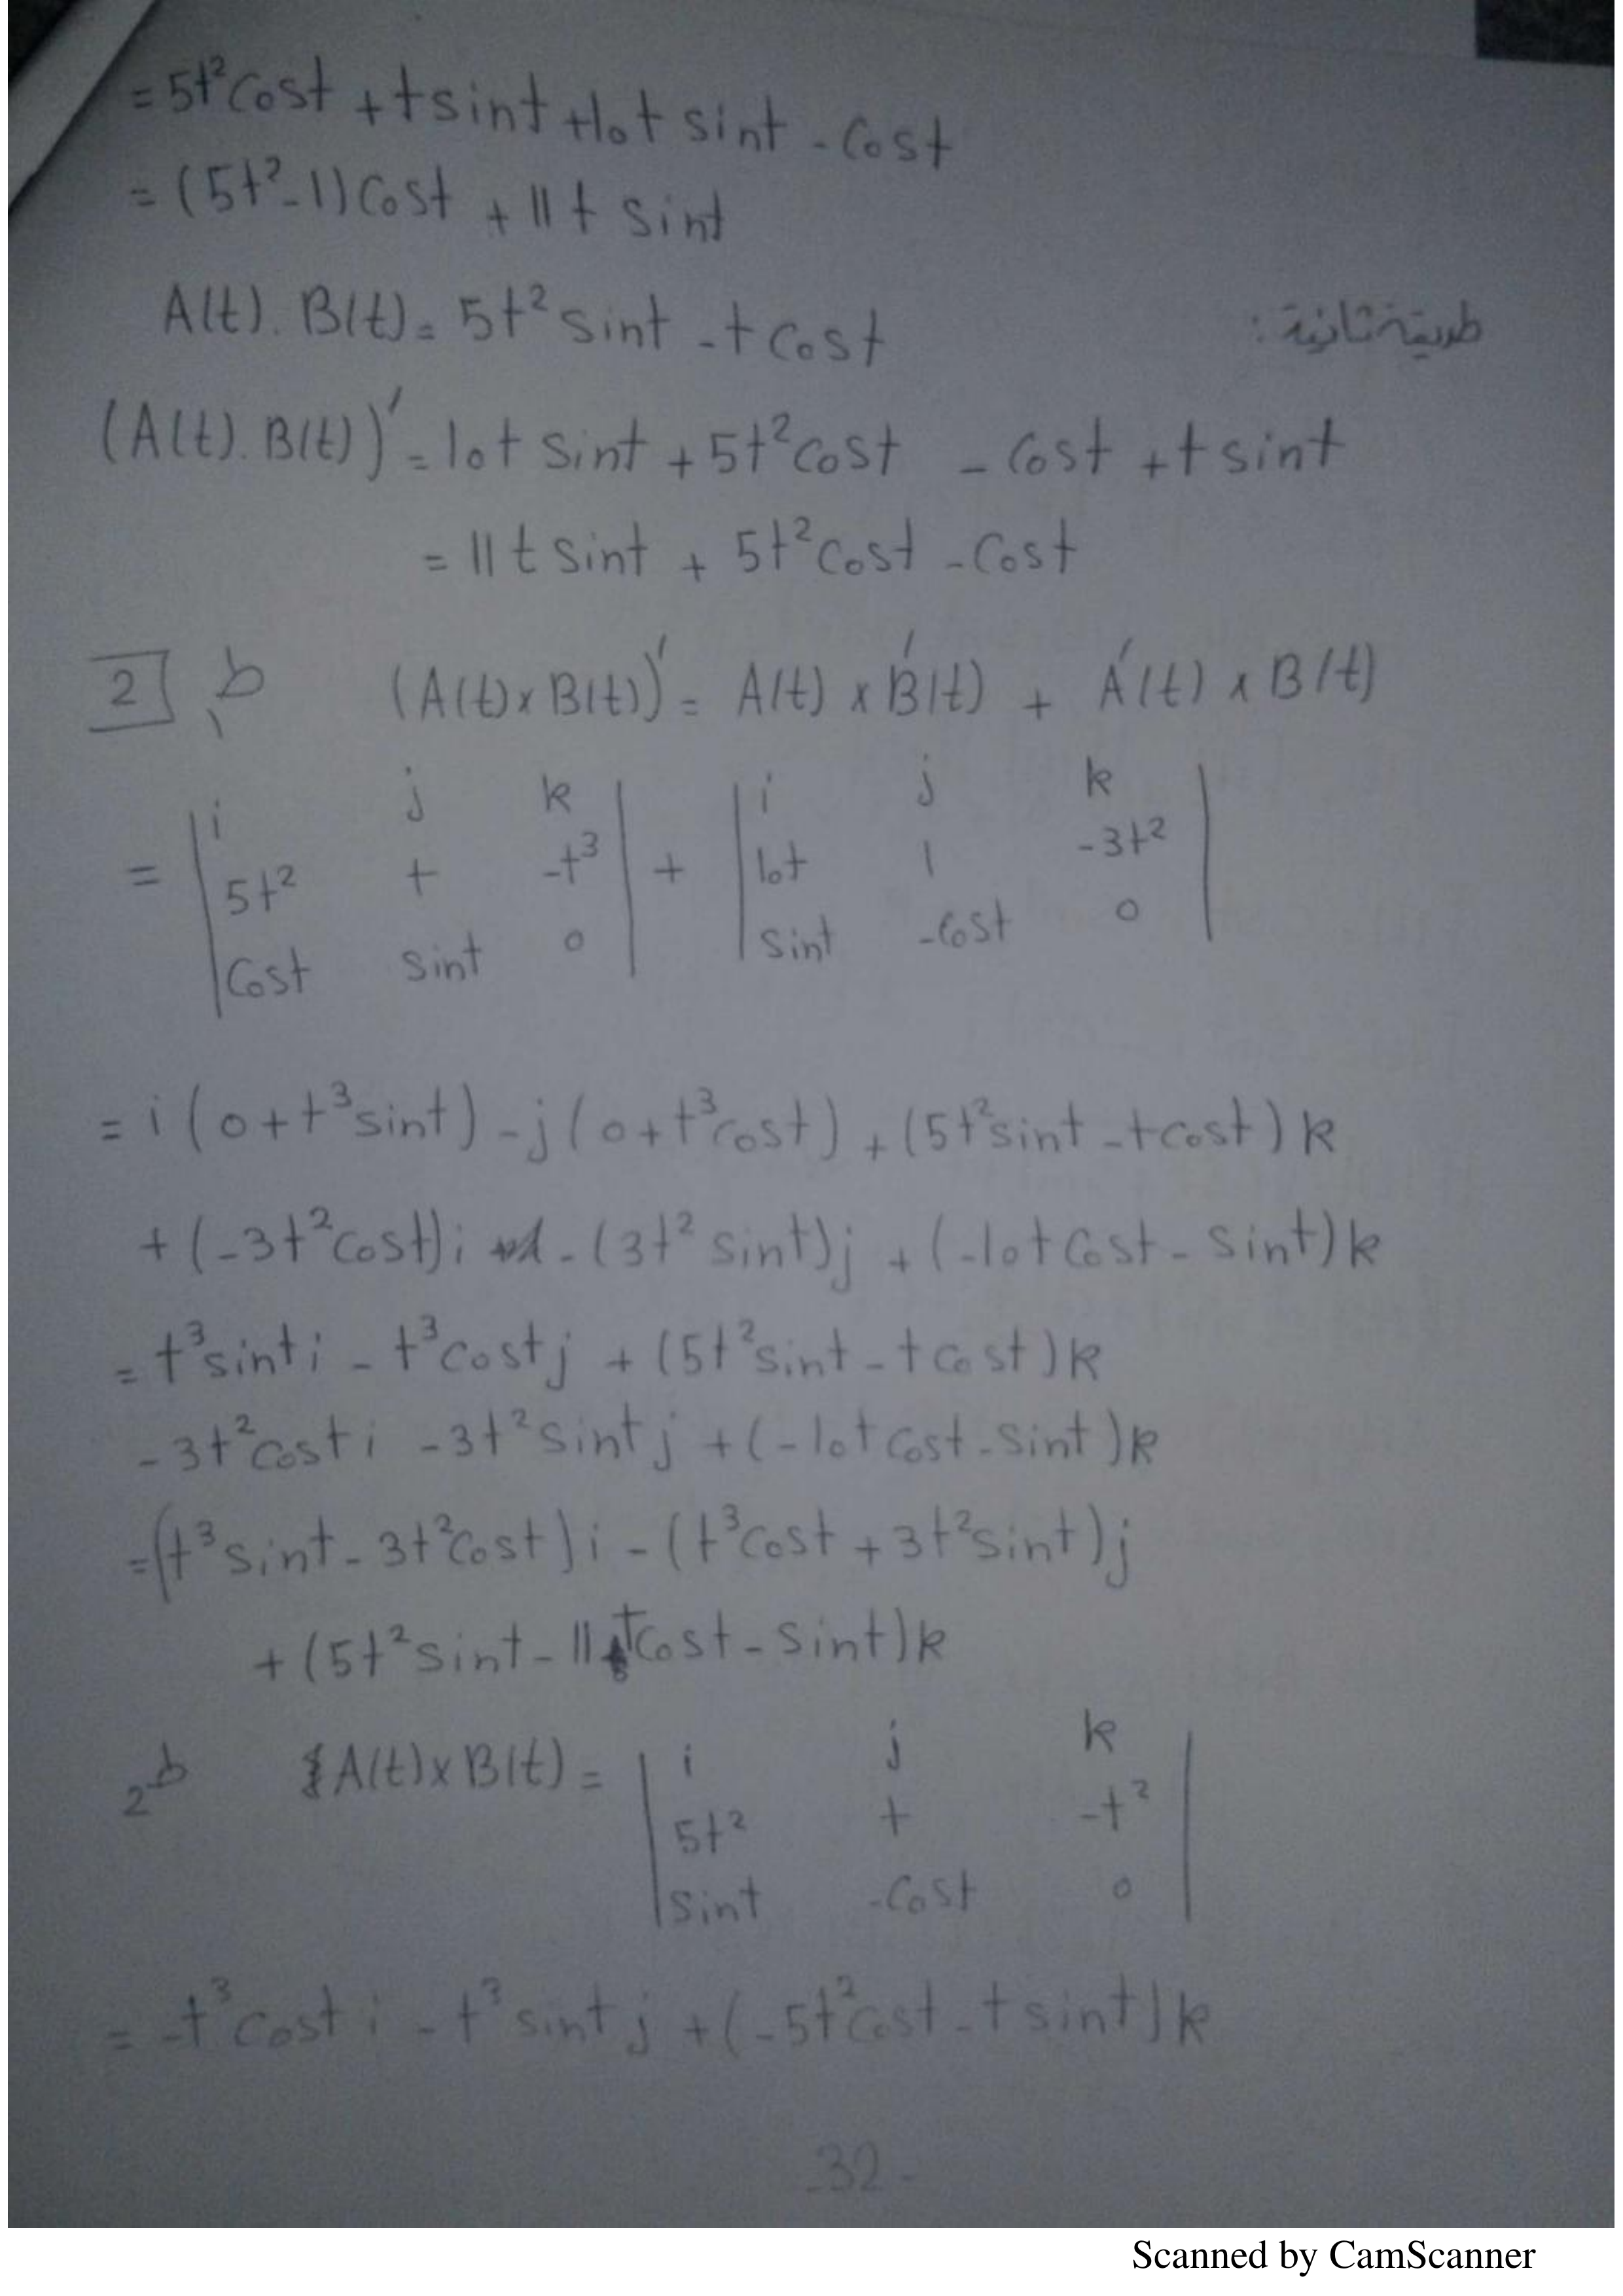 = 5t² cost + t sint + 10t sint - cost
= (5t² - 1) cost + 11t sint
A(t) . B(t) = 5t² sint - t cost طريقة ثانية :
(A(t) . B(t))′ = 10t sint + 5t² cost - cost + t sint
= 11t sint + 5t² cost - cost
2 b₁ (A(t) × B(t))′ = A(t) × B′(t) + A′(t) × B(t)
= | i j k | + | i j k |
| 5t² t -t³ | | 10t 1 -3t² |
| cost sint 0 | | sint -cost 0 |
= i (0 + t³ sint) - j (0 + t³ cost) + (5t² sint - t cost) k
+ (-3t² cost) i - (3t² sint) j + (-10t cost - sint) k
= t³ sint i - t³ cost j + (5t² sint - t cost) k
- 3t² cost i - 3t² sint j + (-10t cost - sint) k
= (t³ sint - 3t² cost) i - (t³ cost + 3t² sint) j
+ (5t² sint - 11 t cost - sint) k
2 b A(t) × B(t) = | i j k |
| 5t² t -t² |
| sint -cost 0 |
= -t³ cost i - t³ sint j + (-5t² cost - t sint) k
- 32 -
Scanned by CamScanner